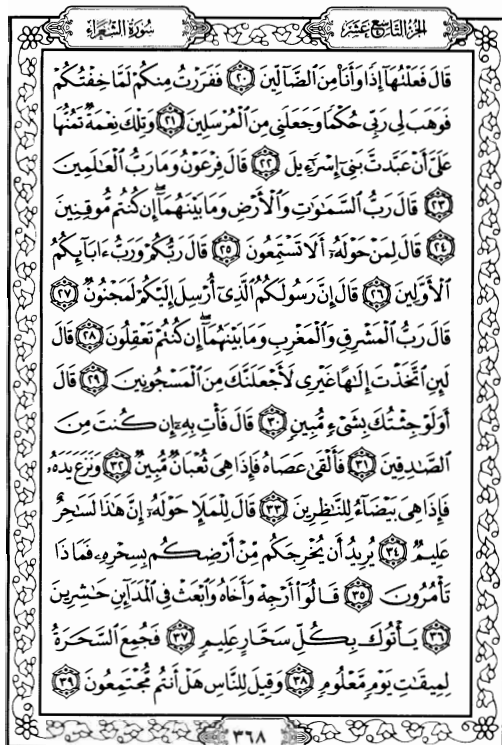 الجزء التاسع عشر سورة الشعراء
قَالَ فَعَلْتُهَآ إِذًا وَأَنَا۠ مِنَ ٱلضَّآلِّينَ ٢٠ فَفَرَرْتُ مِنكُمْ لَمَّا خِفْتُكُمْ
فَوَهَبَ لِى رَبِّى حُكْمًا وَجَعَلَنِى مِنَ ٱلْمُرْسَلِينَ ٢١ وَتِلْكَ نِعْمَةٌ تَمُنُّهَا
عَلَىَّ أَنْ عَبَّدتَّ بَنِىٓ إِسْرَٰٓءِيلَ ٢٢ قَالَ فِرْعَوْنُ وَمَا رَبُّ ٱلْعَٰلَمِينَ
٢٣ قَالَ رَبُّ ٱلسَّمَٰوَٰتِ وَٱلْأَرْضِ وَمَا بَيْنَهُمَآ ۖ إِن كُنتُم مُّوقِنِينَ
٢٤ قَالَ لِمَنْ حَوْلَهُۥٓ أَلَا تَسْتَمِعُونَ ٢٥ قَالَ رَبُّكُمْ وَرَبُّ ءَابَآئِكُمُ
ٱلْأَوَّلِينَ ٢٦ قَالَ إِنَّ رَسُولَكُمُ ٱلَّذِىٓ أُرْسِلَ إِلَيْكُمْ لَمَجْنُونٌ ٢٧
قَالَ رَبُّ ٱلْمَشْرِقِ وَٱلْمَغْرِبِ وَمَا بَيْنَهُمَآ ۖ إِن كُنتُمْ تَعْقِلُونَ ٢٨ قَالَ
لَئِنِ ٱتَّخَذْتَ إِلَٰهًا غَيْرِى لَأَجْعَلَنَّكَ مِنَ ٱلْمَسْجُونِينَ ٢٩ قَالَ
أَوَلَوْ جِئْتُكَ بِشَىْءٍ مُّبِينٍ ٣٠ قَالَ فَأْتِ بِهِۦٓ إِن كُنتَ مِنَ
ٱلصَّٰدِقِينَ ٣١ فَأَلْقَىٰ عَصَاهُ فَإِذَا هِىَ ثُعْبَانٌ مُّبِينٌ ٣٢ وَنَزَعَ يَدَهُۥ
فَإِذَا هِىَ بَيْضَآءُ لِلنَّٰظِرِينَ ٣٣ قَالَ لِلْمَلَإِ حَوْلَهُۥٓ إِنَّ هَٰذَا لَسَٰحِرٌ
عَلِيمٌ ٣٤ يُرِيدُ أَن يُخْرِجَكُم مِّنْ أَرْضِكُم بِسِحْرِهِۦ فَمَاذَا
تَأْمُرُونَ ٣٥ قَالُوٓا۟ أَرْجِهْ وَأَخَاهُ وَٱبْعَثْ فِى ٱلْمَدَآئِنِ حَٰشِرِينَ
٣٦ يَأْتُوكَ بِكُلِّ سَحَّارٍ عَلِيمٍ ٣٧ فَجُمِعَ ٱلسَّحَرَةُ
لِمِيقَٰتِ يَوْمٍ مَّعْلُومٍ ٣٨ وَقِيلَ لِلنَّاسِ هَلْ أَنتُم مُّجْتَمِعُونَ ٣٩
٣٦٨